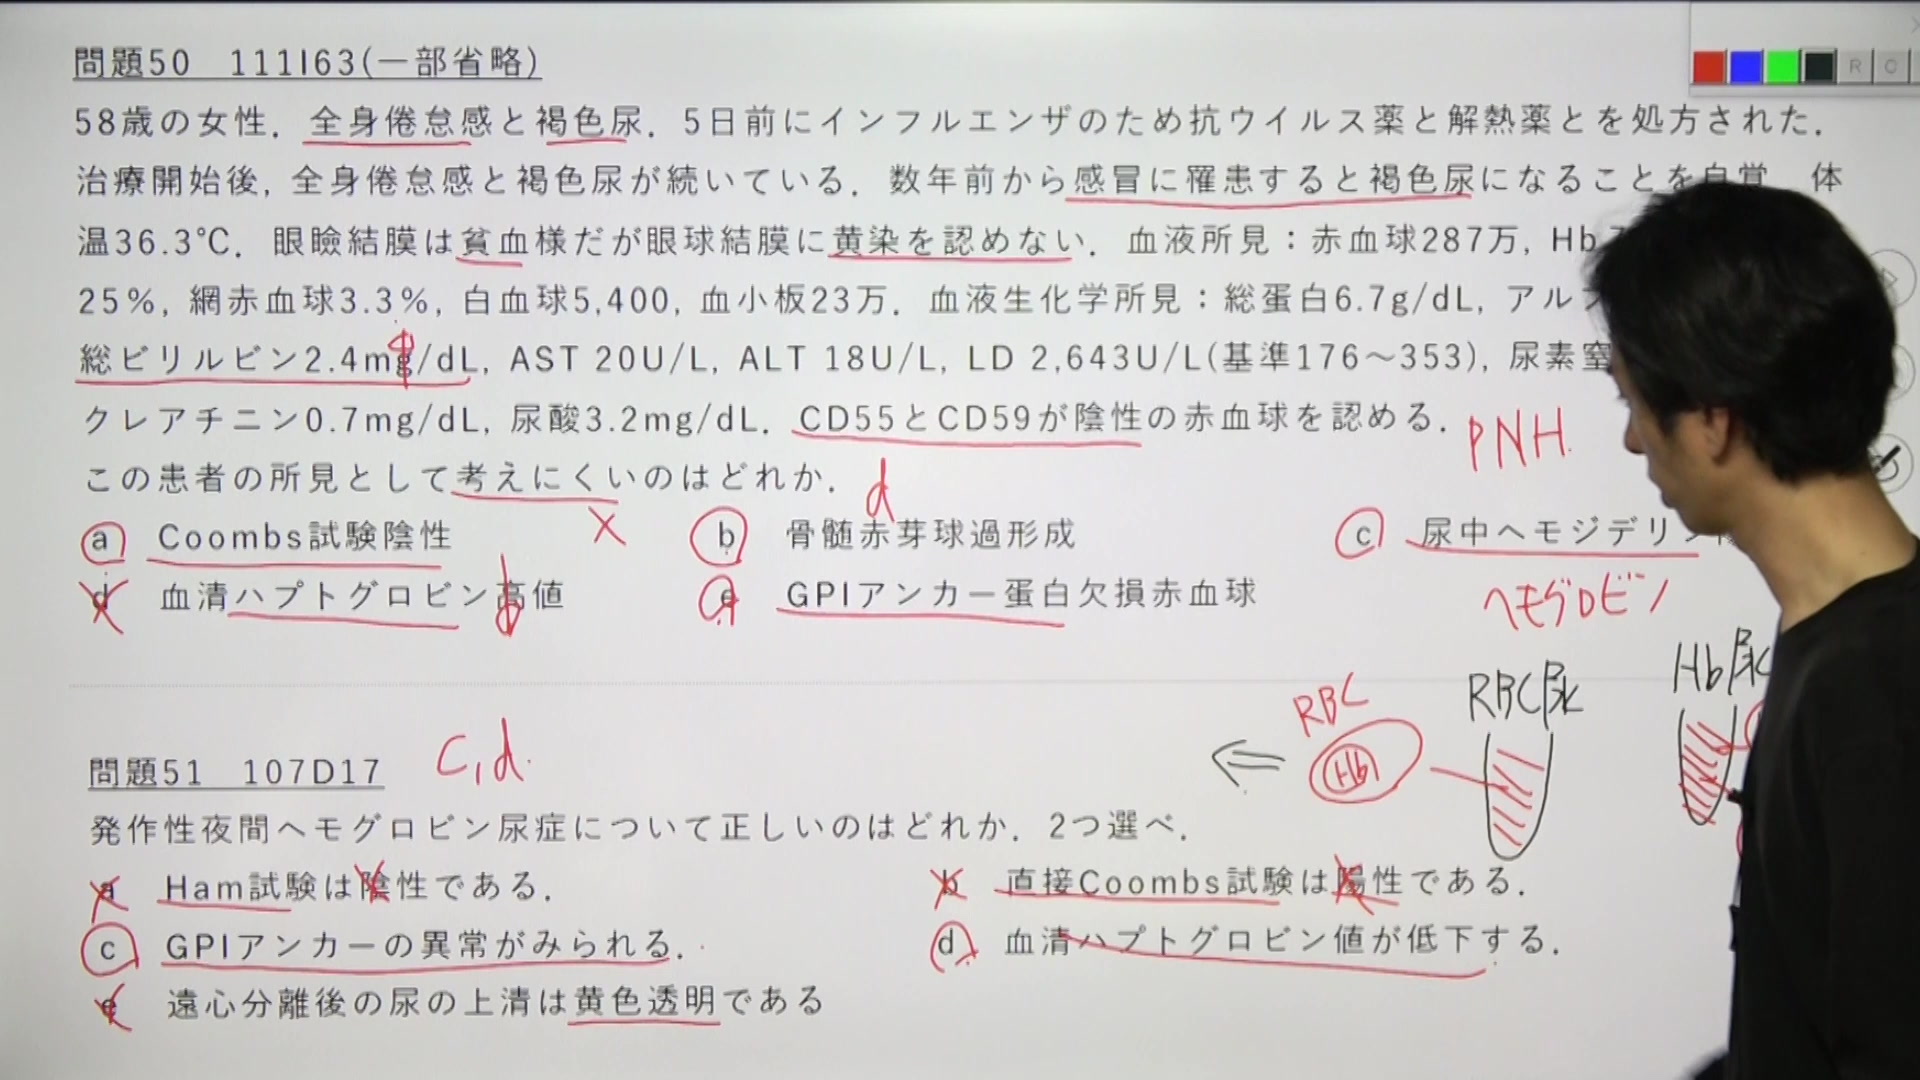 問題50 111I63(一部省略)
58歳の女性．全身倦怠感と褐色尿．5日前にインフルエンザのため抗ウイルス薬と解熱薬とを処方された．
治療開始後，全身倦怠感と褐色尿が続いている．数年前から感冒に罹患すると褐色尿になることを自覚 体
温36.3℃．眼瞼結膜は貧血様だが眼球結膜に黄染を認めない．血液所見：赤血球287万，Hb
25%，網赤血球3.3%，白血球5,400，血小板23万．血液生化学所見：総蛋白6.7g/dL，アル
総ビリルビン2.4mg/dL，AST 20U/L，ALT 18U/L，LD 2,643U/L(基準176〜353)，尿素窒
クレアチニン0.7mg/dL，尿酸3.2mg/dL．CD55とCD59が陰性の赤血球を認める．
PNH
この患者の所見として考えにくいのはどれか．
d
a Coombs試験陰性
b 骨髄赤芽球過形成
c 尿中ヘモジデリン
d 血清ハプトグロビン高値
e GPIアンカー蛋白欠損赤血球
ヘモグロビン
RBC
Hb
RBC尿
Hb尿
問題51 107D17
c,d.
発作性夜間ヘモグロビン尿症について正しいのはどれか．2つ選べ．
a Ham試験は陰性である．
b 直接Coombs試験は陽性である．
c GPIアンカーの異常がみられる．
d 血清ハプトグロビン値が低下する．
e 遠心分離後の尿の上清は黄色透明である
R
C